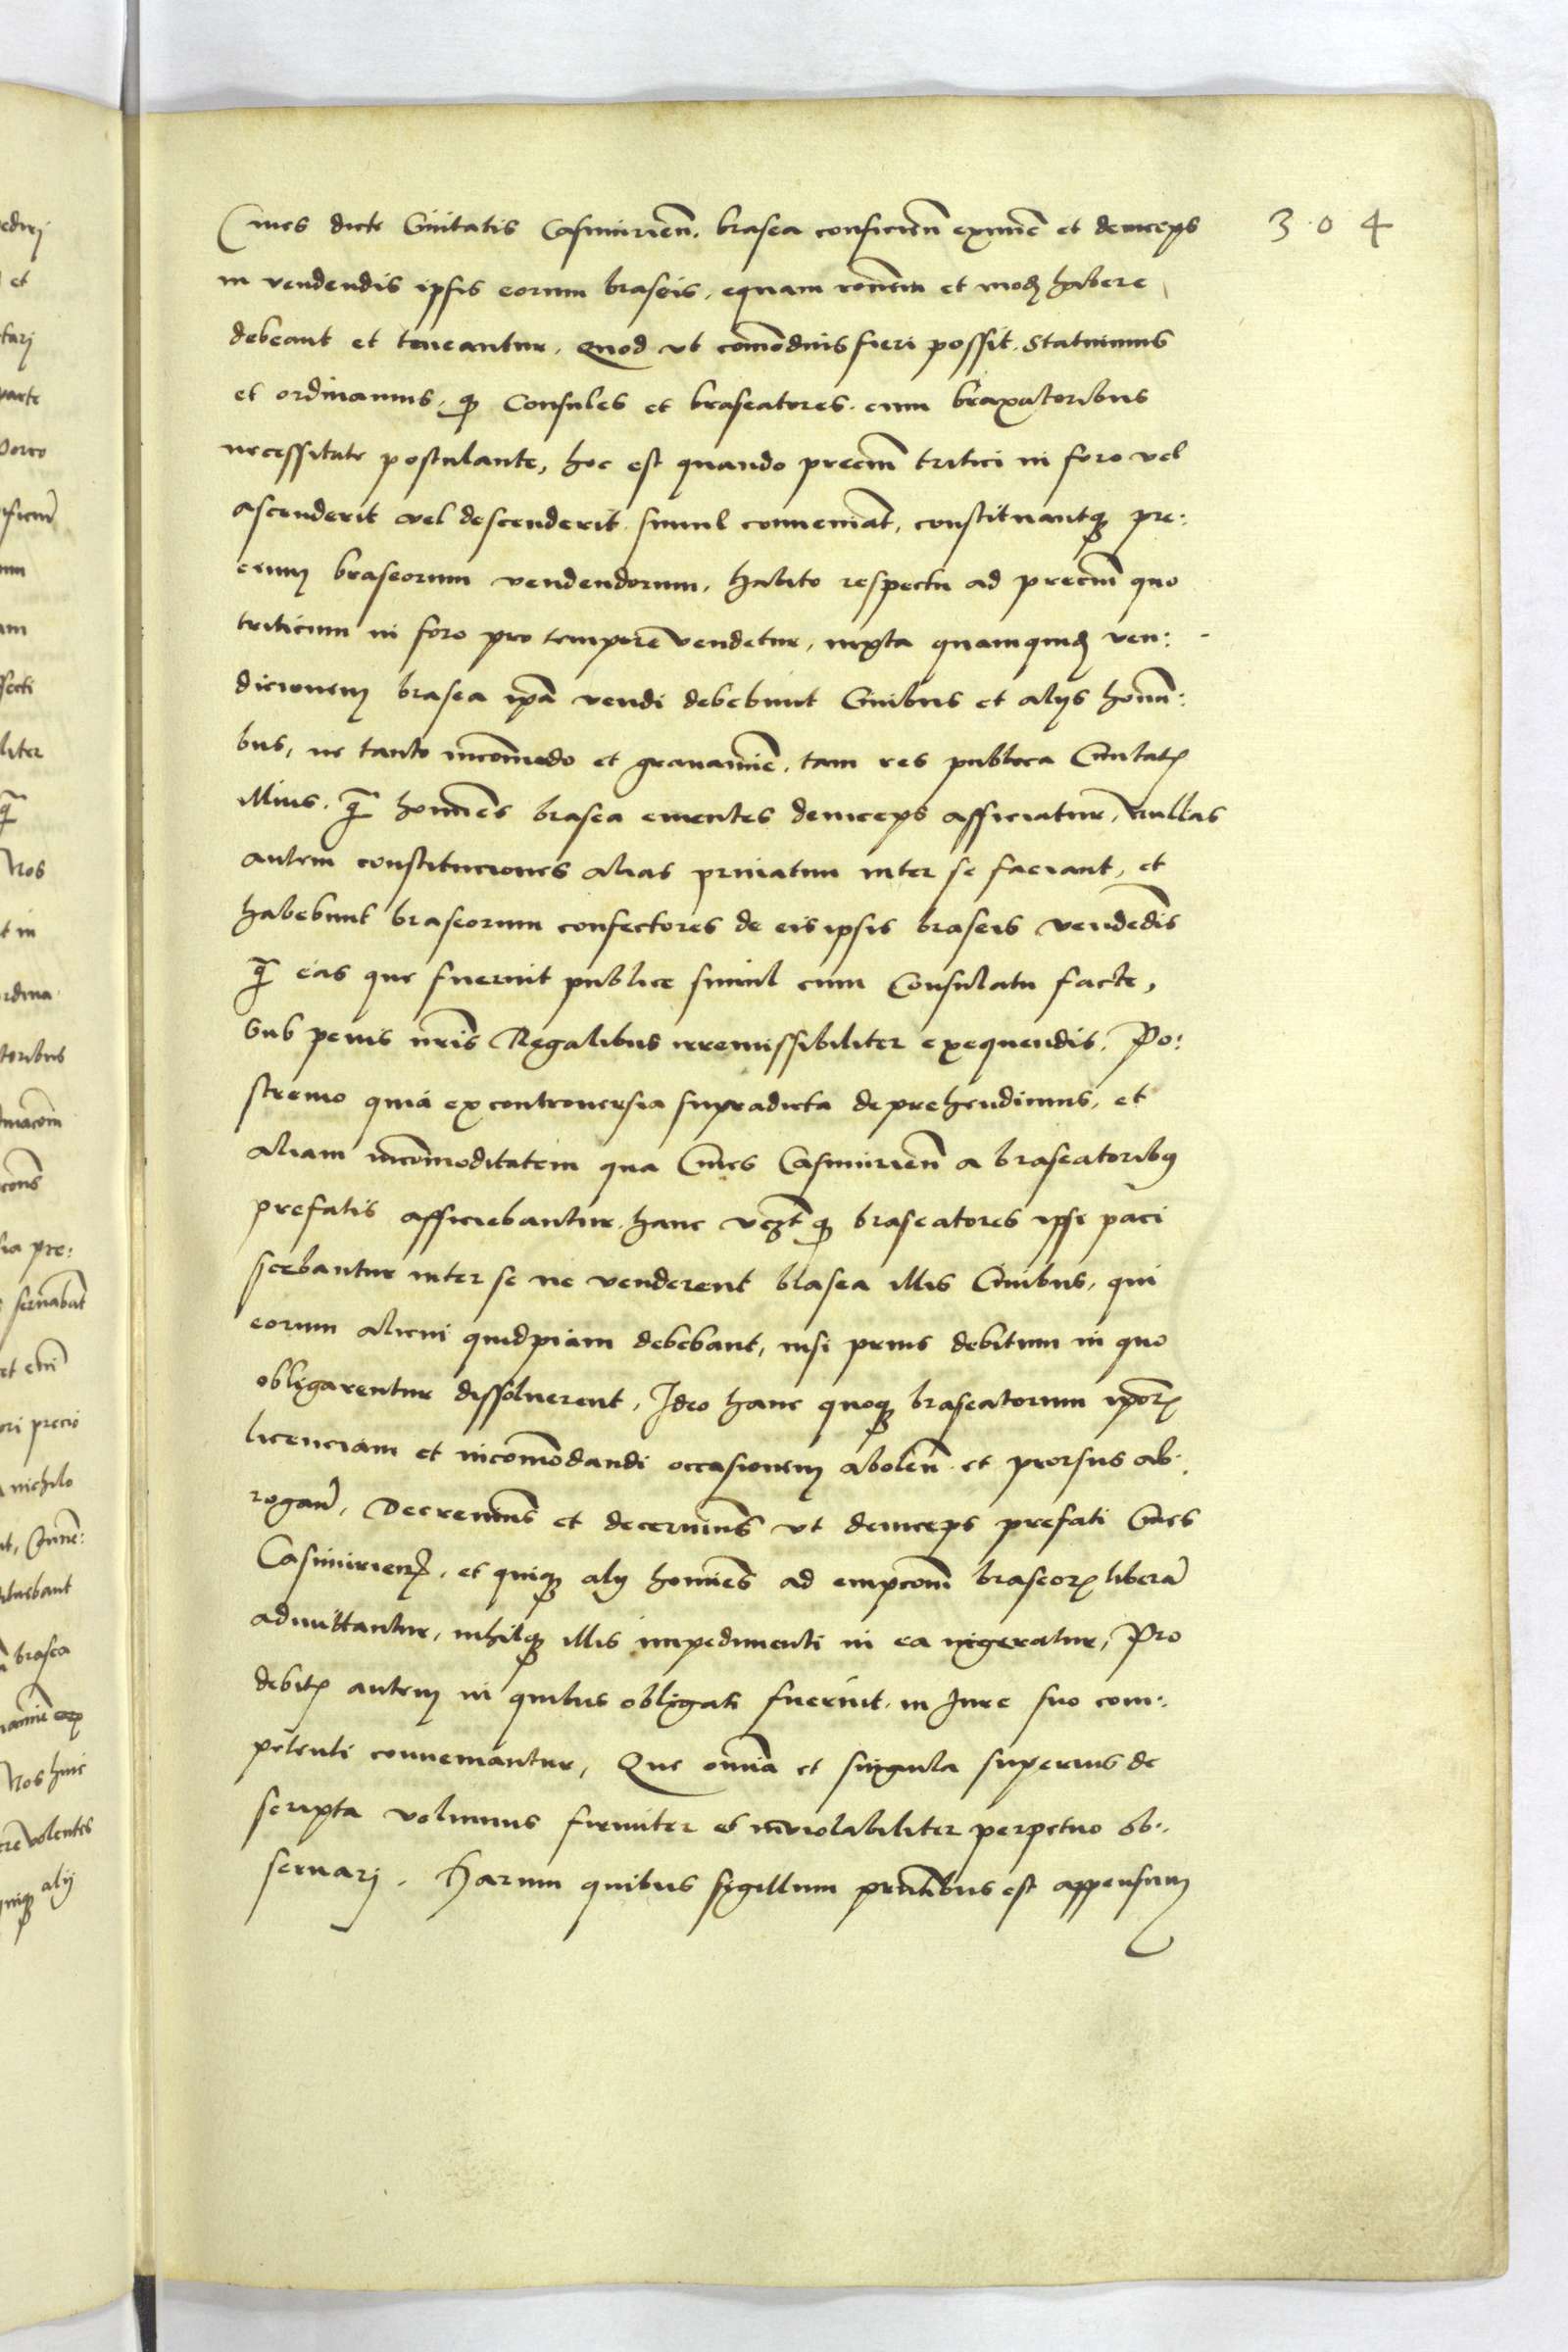 304
Ciues dicte Ciuitatis Casimirien̄. brasea conficien̄ eximie et deinceps
in vendendis ipsis eorum braseis, equam ronēm et modū habere
debeant et teneantur. Quod vt com̄odius fieri possit. Statuimus
et ordinamus, ꝙ Consules et braseatores cum braxatoribus
necessitate postulante, hoc est quando preciū tritici in foro vel
ascenderit vel descenderit. simul conueniāt, constituantqꝫ pre:
cium braseorum vendendorum, habito respectu ad preciū quo
triticum in foro pro tempore vendetur, iuxta quamquidē ven:
dicionem brasea ip̄a vendi debebunt Ciuibus et alijs homī:
bus, ne tanto incom̄odo et grauamīe, tam res publica Ciuitatꝭ
illius. ꝗ̄ homīes brasea ementes deinceps afficiatur. Nullas
autem constituciones alias priuatim inter se faciant, et
habebunt braseorum confectores de eis ipsis braseis vendēdis
ꝗ̄ eas que fuerint publice simul cum Consulatu facte,
Sub penis nr̄is Regalibus irremissibiliter exequendis. Po:
stremo quia ex controuersia supradicta deprehendimus, et
aliam incom̄oditatem qua Ciues Casimirien̄ a braseatoribꝰ
prefatis afficiebantur. hanc vꝫt ꝙ braseatores ipsi paci
scebantur inter se ne venderent blasea illis Ciuibus, qui
eorum alicui quidpiam debebant, nisi prius debitum in quo
obligarentur dissoluerent, Ideo hanc quoqꝫ braseatorum ip̄orꝝ
licenciam et incom̄odandi occasionem abolen̄. et prorsus ab:
rogan̄. Decreuimus et decernimus vt deinceps prefati Ciues
Casimirien̄, et quiqꝫ alij homīes ad empcōm braseorꝝ liberā
admittantur, nihilqꝫ illis impedimenti in ea ingeratur, Pro
debitꝭ autem in quibus obligati fuerint. in Jure suo com:
petenti conueniantur, Que om̄ia et singula superius de
scripta volumus firmiter et inviolabiliter perpetuo ob:
seruari. Harum quibus sigillum pn̄tibus est appensum